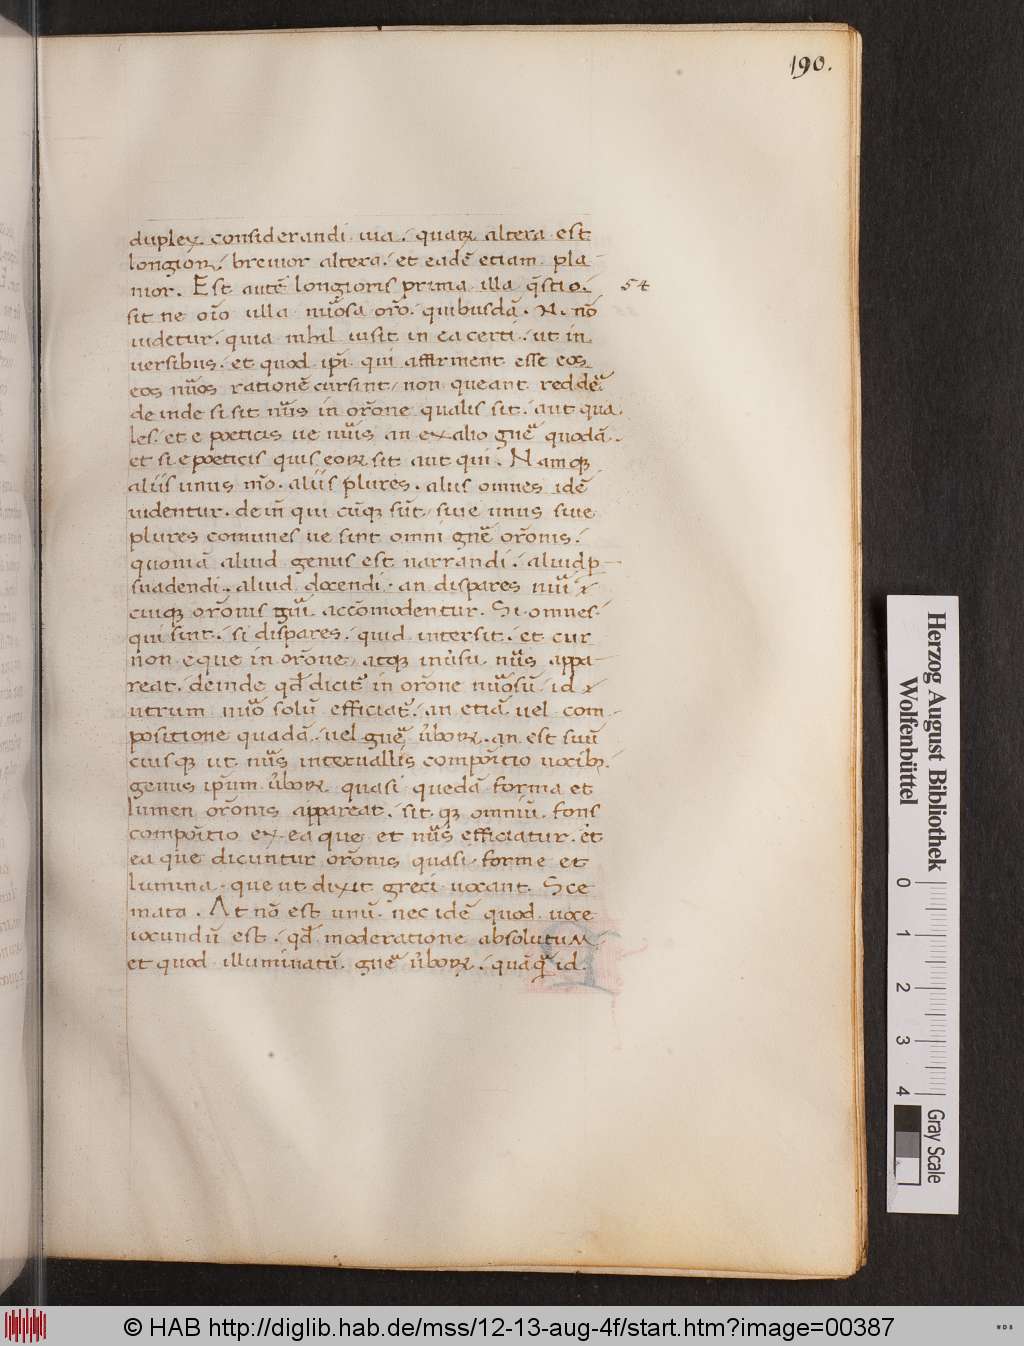 190.
duplex considerandi uia. quarꝝ altera est
longior. breuior altera. et eadē etiam pla-
nior. Est autē longioris prima illa q̄stio.
54
sit ne oīo ulla nūosa orō. quibusdā. N. nō
uidetur. quia nihil insit in ea certi. ut in
uersibus. et quod ip̄i qui affirment esse eos
eos nūos rationē cur sint, non queant reddē
deinde si sit nūs in orōne qualis sit. aut qua
les. et e poeticis ue nūis an ex alio gn̄e quodā.
et si e poeticis quis eorꝝ sit aut qui. Namqꝫ
aliis unus mō. aliis plures. alus omnes idē
uidentur. dein̄ qui cūqꝫ sūt siue unus siue
plures comunes ue sint omni gn̄e orōnis.
quoniā aliud genus est narrandi. aliud ꝑ-
suadendi. aliud docendi. an dispares
cuiqꝫ orōnis accōmodentur. Si omnes.
qui sint. si dispares. quid intersit. et cur
non eque in orōne, atqꝫ in ūsu nūs appa-
reat. deinde qd̄ dicit in orōne nūosū. id
utrum nūo solū efficiat. an etiā uel com-
positione quadā. uel gn̄e ūborꝝ. an est suū
cuiusqꝫ ut nūs interuallis compōitio uocibꝫ.
genus ip̄um ūborꝝ quasi quedā forma et
lumen orōnis appareat. sit qꝫ omniū fons
compōitio ex ea que et nūs efficiatur. et
ea que dicuntur orōnis quasi forme et
lumina. que ut dixit greci uocant. Sce
mata. At nō est unū. nec idē quod uoce
iocundū est. qd̄ moderatione absolutum
et quod illuminatū. gn̄e ūborꝝ. quāqꝫ id.
Herzog August Bibliothek
Wolfenbüttel
0 1 2 3 4
Gray Scale
© HAB http://diglib.hab.de/mss/12-13-aug-4f/start.htm?image=00387
WDB